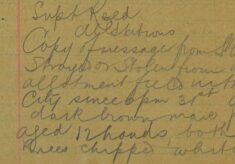 Supt Reed
all stations
Copy of message from
Strayed or Stolen from
allotment
City since 6 pm 31st
dark brown mare
aged 12 hands, both
knees chipped white